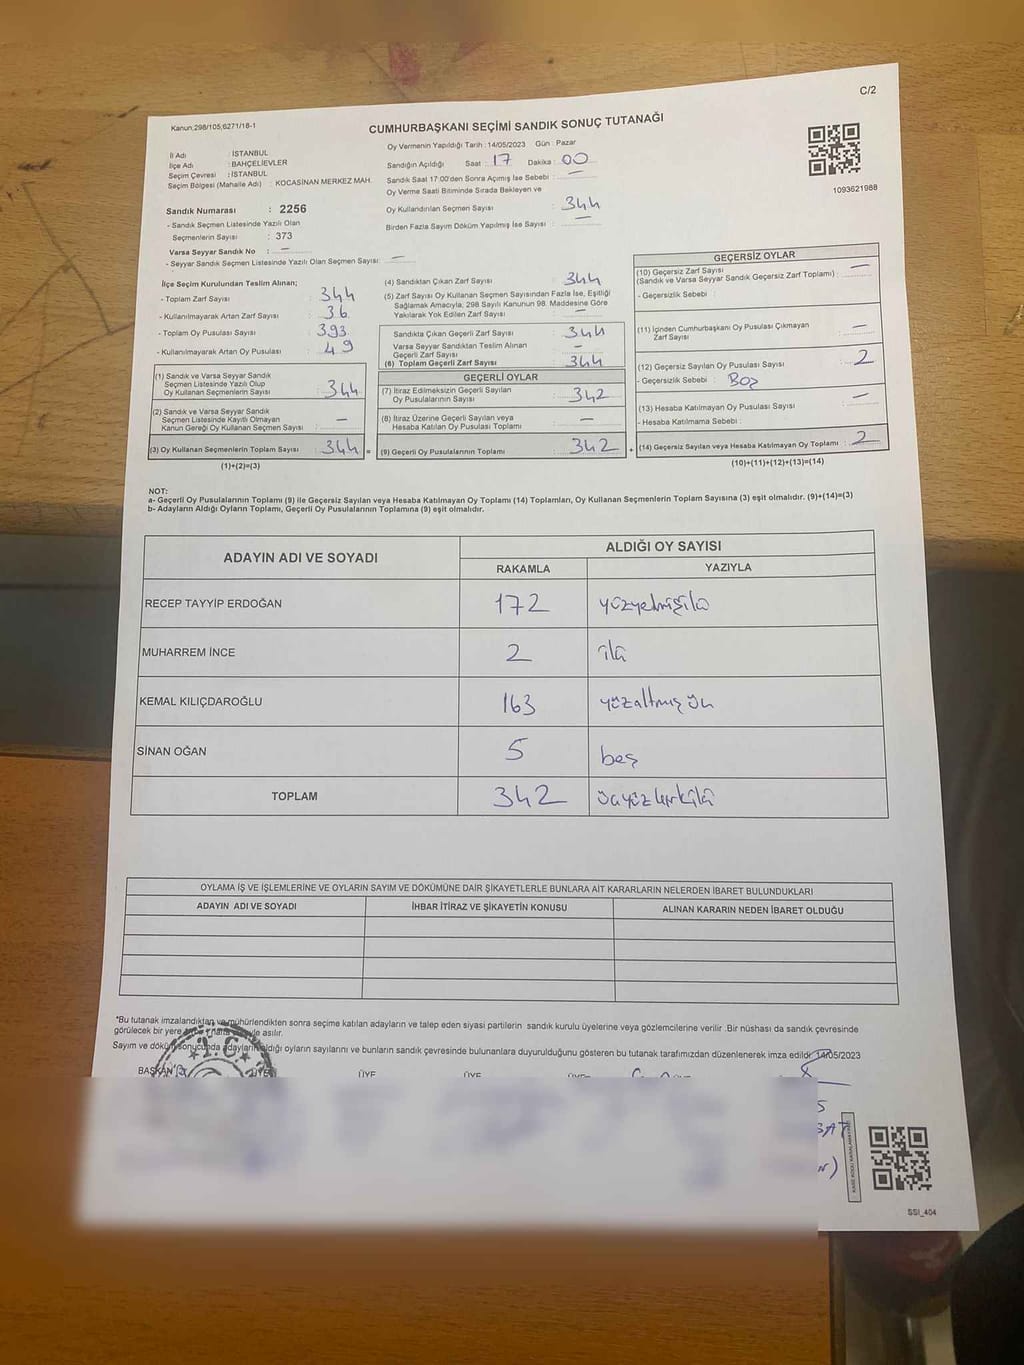 C/2
Kanun:298/105;6271/18-1
CUMHURBAŞKANI SEÇİMİ SANDIK SONUÇ TUTANAĞI
İl Adı : İSTANBUL
İlçe Adı : BAHÇELİEVLER
Seçim Çevresi : İSTANBUL
Seçim Bölgesi (Mahalle Adı) : KOCASİNAN MERKEZ MAH.
Sandık Numarası : 2256
- Sandık Seçmen Listesinde Yazılı Olan
Seçmenlerin Sayısı : 373
Varsa Seyyar Sandık No : —
- Seyyar Sandık Seçmen Listesinde Yazılı Olan Seçmen Sayısı: —
Oy Vermenin Yapıldığı Tarih : 14/05/2023 Gün : Pazar
Sandığın Açıldığı Saat : 17 Dakika : 00
Sandık Saat 17:00'den Sonra Açılmış İse Sebebi : —
Oy Verme Saati Bitiminde Sırada Bekleyen ve
Oy Kullandırılan Seçmen Sayısı : 344
Birden Fazla Sayım Döküm Yapılmış İse Sayısı : —
1093621988
İlçe Seçim Kurulundan Teslim Alınan;
- Toplam Zarf Sayısı : 344
- Kullanılmayarak Artan Zarf Sayısı : 36
- Toplam Oy Pusulası Sayısı : 393
- Kullanılmayarak Artan Oy Pusulası : 49
(1) Sandık ve Varsa Seyyar Sandık
Seçmen Listesinde Yazılı Olup
Oy Kullanan Seçmenlerin Sayısı : 344
(2) Sandık ve Varsa Seyyar Sandık
Seçmen Listesinde Kayıtlı Olmayan
Kanun Gereği Oy Kullanan Seçmen Sayısı : —
(3) Oy Kullanan Seçmenlerin Toplam Sayısı : 344 =
(1)+(2)=(3)
(4) Sandıktan Çıkan Zarf Sayısı : 344
(5) Zarf Sayısı Oy Kullanan Seçmen Sayısından Fazla İse, Eşitliği
Sağlamak Amacıyla, 298 Sayılı Kanunun 98. Maddesine Göre
Yakılarak Yok Edilen Zarf Sayısı : —
Sandıkta Çıkan Geçerli Zarf Sayısı : 344
Varsa Seyyar Sandıktan Teslim Alınan
Geçerli Zarf Sayısı : —
(6) Toplam Geçerli Zarf Sayısı : 344
GEÇERLİ OYLAR
(7) İtiraz Edilmeksizin Geçerli Sayılan
Oy Pusulalarının Sayısı : 342
(8) İtiraz Üzerine Geçerli Sayılan veya
Hesaba Katılan Oy Pusulası Toplamı : —
(9) Geçerli Oy Pusulalarının Toplamı : 342 +
GEÇERSİZ OYLAR
(10) Geçersiz Zarf Sayısı
(Sandık ve Varsa Seyyar Sandık Geçersiz Zarf Toplamı) : —
- Geçersizlik Sebebi :
(11) İçinden Cumhurbaşkanı Oy Pusulası Çıkmayan
Zarf Sayısı : —
(12) Geçersiz Sayılan Oy Pusulası Sayısı : 2
- Geçersizlik Sebebi : Boş
(13) Hesaba Katılmayan Oy Pusulası Sayısı : —
- Hesaba Katılmama Sebebi :
(14) Geçersiz Sayılan veya Hesaba Katılmayan Oy Toplamı : 2
(10)+(11)+(12)+(13)=(14)
NOT:
a- Geçerli Oy Pusulalarının Toplamı (9) ile Geçersiz Sayılan veya Hesaba Katılmayan Oy Toplamı (14) Toplamları, Oy Kullanan Seçmenlerin Toplam Sayısına (3) eşit olmalıdır. (9)+(14)=(3)
b- Adayların Aldığı Oyların Toplamı, Geçerli Oy Pusulalarının Toplamına (9) eşit olmalıdır.
ADAYIN ADI VE SOYADI ALDIĞI OY SAYISI
RAKAMLA YAZIYLA
RECEP TAYYİP ERDOĞAN 172 yüzyetmişiki
MUHARREM İNCE 2 iki
KEMAL KILIÇDAROĞLU 163 yüzaltmış üç
SİNAN OĞAN 5 beş
TOPLAM 342 üçyüzkırkiki
OYLAMA İŞ VE İŞLEMLERİNE VE OYLARIN SAYIM VE DÖKÜMÜNE DAİR ŞİKAYETLERLE BUNLARA AİT KARARLARIN NELERDEN İBARET BULUNDUKLARI
ADAYIN ADI VE SOYADI İHBAR İTİRAZ VE ŞİKAYETİN KONUSU ALINAN KARARIN NEDEN İBARET OLDUĞU
*Bu tutanak imzalandıktan ve mühürlendikten sonra seçime katılan adayların ve talep eden siyasi partilerin sandık kurulu üyelerine veya gözlemcilerine verilir .Bir nüshası da sandık çevresinde
görülecek bir yere hafta süreyle asılır.
Sayım ve döküm sonucunda adayların aldığı oyların sayılarını ve bunların sandık çevresinde bulunanlara duyurulduğunu gösteren bu tutanak tarafımızdan düzenlenerek imza edildi. 14/05/2023
T.C.
BAŞKAN ÜYE ÜYE ÜYE
SSI_404